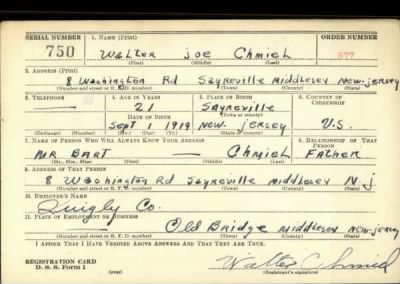 SERIAL NUMBER 1. NAME (Print) ORDER NUMBER
750 Walter Joe Chmieh 877
(First) (Middle) (Last)
2. ADDRESS (Print)
8 Washington Rd Sayreville Middlesex New-jersey
(Number and street or R. F. D. number) (Town) (County) (State)
3. TELEPHONE 4. AGE IN YEARS 5. PLACE OF BIRTH 6. COUNTRY OF CITIZENSHIP
— 21 Sayreville
DATE OF BIRTH (Town or county)
Sept 1 1919 New jersey U.S.
(Exchange) (Number) (Mo.) (Day) (Yr.) (State or country)
7. NAME OF PERSON WHO WILL ALWAYS KNOW YOUR ADDRESS 8. RELATIONSHIP OF THAT PERSON
MR Bart — Chmieh Father
(Mr., Mrs., Miss) (First) (Middle) (Last)
9. ADDRESS OF THAT PERSON
8 Washington Rd Sayreville Middlesex N.j
(Number and street or R. F. D. number) (Town) (County) (State)
10. EMPLOYER'S NAME
Quigly Co.
11. PLACE OF EMPLOYMENT OR BUSINESS
Old Bridge Middlesex New-jersey
(Number and street or R. F. D. number) (Town) (County) (State)
I AFFIRM THAT I HAVE VERIFIED ABOVE ANSWERS AND THAT THEY ARE TRUE.
REGISTRATION CARD
D. S. S. Form 1 (over) Walter Chmiel
(Registrant's signature)